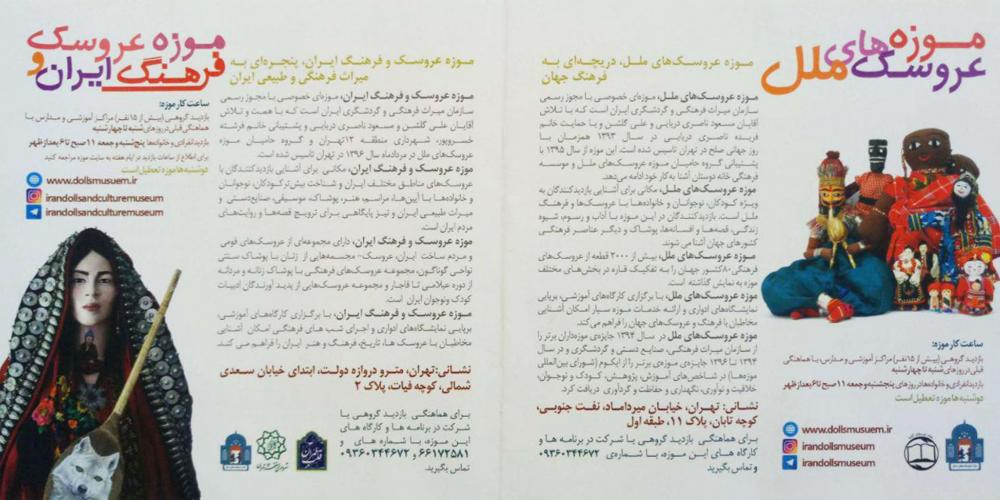 موزه
عروسک‌های
ملل
موزه عروسک‌های ملل، دریچه‌ای به
فرهنگ جهان
موزه عروسک‌های ملل، موزه‌ای خصوصی با مجوز رسمی
سازمان میراث فرهنگی و گردشگری ایران است که با تلاش
آقایان مسعود ناصری دریایی و علی گلشن و با حمایت خانم
فریده ناصری دریایی در سال ۱۳۹۳ همزمان با
روز جهانی صلح در تهران تاسیس شده است. این موزه از سال ۱۳۹۵ با
پشتیبانی گروه حامیان موزه عروسک‌های ملل و موسسه
فرهنگی خانه دوستان آشنا به کار خود ادامه می‌دهد.
موزه عروسک‌های ملل، مکانی برای آشنایی بازدیدکنندگان به
ویژه کودکان، نوجوانان و خانواده‌ها با عروسک‌ها و فرهنگ
ملل است. بازدیدکنندگان در این موزه با آداب و رسوم، شیوه
زندگی، قصه‌ها و افسانه‌ها، پوشاک و دیگر عناصر فرهنگی
کشورهای جهان آشنا می شوند.
موزه عروسک‌های ملل، بیش از ۲۰۰۰ قطعه از عروسک‌های
فرهنگی ۸۰کشور جهان را به تفکیک قاره در بخش‌های مختلف
موزه به نمایش گذاشته است.
موزه عروسک‌های ملل، با برگزاری کارگاه‌های آموزشی، برپایی
نمایشگاه‌های ادواری و ارائه خدمات موزه سیار امکان آشنایی
مخاطبان با فرهنگ و عروسک‌های جهان را فراهم می‌کند.
موزه عروسک‌های ملل در سال ۱۳۹۴ جایزه‌ی موزه‌داران برتر را
از سازمان میراث فرهنگی، صنایع دستی و گردشگری و در سال
۱۳۹۴ تا ۱۳۹۶ جایزه‌ی موزه‌ی برتر را از ایکوم (شورای بین‌المللی
موزه‌ها) در شاخص‌های آموزش، پژوهش، کودک و نوجوان،
خلاقیت و نوآوری، نگهداری و حفاظت و گردآوری دریافت کرد.
نشانی: تهران، خیابان میرداماد، نفت جنوبی،
کوچه تابان، پلاک ۱۱، طبقه اول
برای هماهنگی بازدید گروهی یا شرکت در برنامه ها و
کارگاه های این موزه، با شماره‌ی ۰۹۳۶۰۳۴۴۶۷۲
و تماس بگیرید.
ساعت کار موزه:
بازدید گروهی (بیش از ۱۵نفر) مراکز آموزشی و مدارس با هماهنگی
قبلی در روزهای شنبه تا چهارشنبه
بازدید انفرادی و خانواده‌ها در روزهای پنجشنبه و جمعه ۱۱ صبح تا ۶ بعدازظهر
دوشنبه‌ها موزه تعطیل است
www.dollsmusuem.ir
irandollsmuseum
irandollsmuseum
موزه عروسک
و فرهنگ ایران
ساعت کار موزه:
بازدید گروهی (بیش از ۱۵نفر) مراکز آموزشی و مدارس با
هماهنگی قبلی در روزهای شنبه تا چهارشنبه
بازدید انفرادی و خانواده‌ها پنج‌شنبه و جمعه ۱۱ صبح تا ۶ بعدازظهر
برای اطلاع از ساعات بازدید در ایام هفته به سایت موزه مراجعه کنید
دوشنبه‌ها موزه تعطیل است
www.dollsmusuem.ir
irandollsandculturemuseum
irandollsandculturemuseum
موزه عروسک و فرهنگ ایران، پنجره‌ای به
میراث فرهنگی و طبیعی ایران
موزه عروسک و فرهنگ ایران، موزه‌ای خصوصی با مجوز رسمی
سازمان میراث فرهنگی و گردشگری ایران است که با همت و تلاش
آقایان علی گلشن و مسعود ناصری دریایی و پشتیبانی خانم فرشته
خسروپور، شهرداری منطقه ۱۲تهران و گروه حامیان موزه
عروسک‌های ملل در مردادماه سال ۱۳۹۶ در تهران تاسیس شده است.
موزه عروسک و فرهنگ ایران، مکانی برای آشنایی بازدیدکنندگان با
عروسک‌های مناطق مختلف ایران و شناخت بیش‌تر کودکان، نوجوانان
و خانواده‌ها با آیین‌ها، مراسم، هنر، پوشاک، موسیقی، صنایع‌دستی و
میراث طبیعی ایران و نیز پایگاهی برای ترویج قصه‌ها و روایت‌های
مردم ایران است.
موزه عروسک و فرهنگ ایران، دارای مجموعه‌ای از عروسک‌های قومی
و مردم ساخت ایران، عروسک- مجسمه‌هایی از زنان با پوشاک سنتی
نواحی گوناگون، مجموعه عروسک‌های فرهنگی با پوشاک زنانه و مردانه
از دوره عیلامی تا قاجار و مجموعه عروسک‌هایی از پدید آورندگان ادبیات
کودک ونوجوان ایران است.
موزه عروسک و فرهنگ ایران، با برگزاری کارگاه‌های آموزشی،
برپایی نمایشگاه‌های ادواری و اجرای شب های فرهنگی امکان آشنایی
مخاطبان با عروسک ها، تاریخ، فرهنگ و هنر ایران را فراهم می کند.
نشانی:تهران، مترو دروازه دولت، ابتدای خیابان سعدی
شمالی، کوچه فیات، پلاک ۲
برای هماهنگی بازدید گروهی یا
شرکت در برنامه ها و کارگاه های
این موزه، با شماره های
۶۶۱۷۲۵۸۱ و ۰۹۳۶۰۳۴۴۶۷۲
تماس بگیرید.